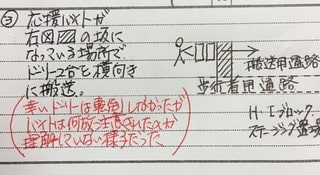 ③ 応援バイトが
右図▨の坂に
なっている場所で
ドリー2台を横向き
に搬送。
(幸いドリーは転倒しなかったが
バイトは何故注意されたのか
理解していない様子だった)
搬送用通路
歩行者用通路
H・Iブロック
ステージング置場